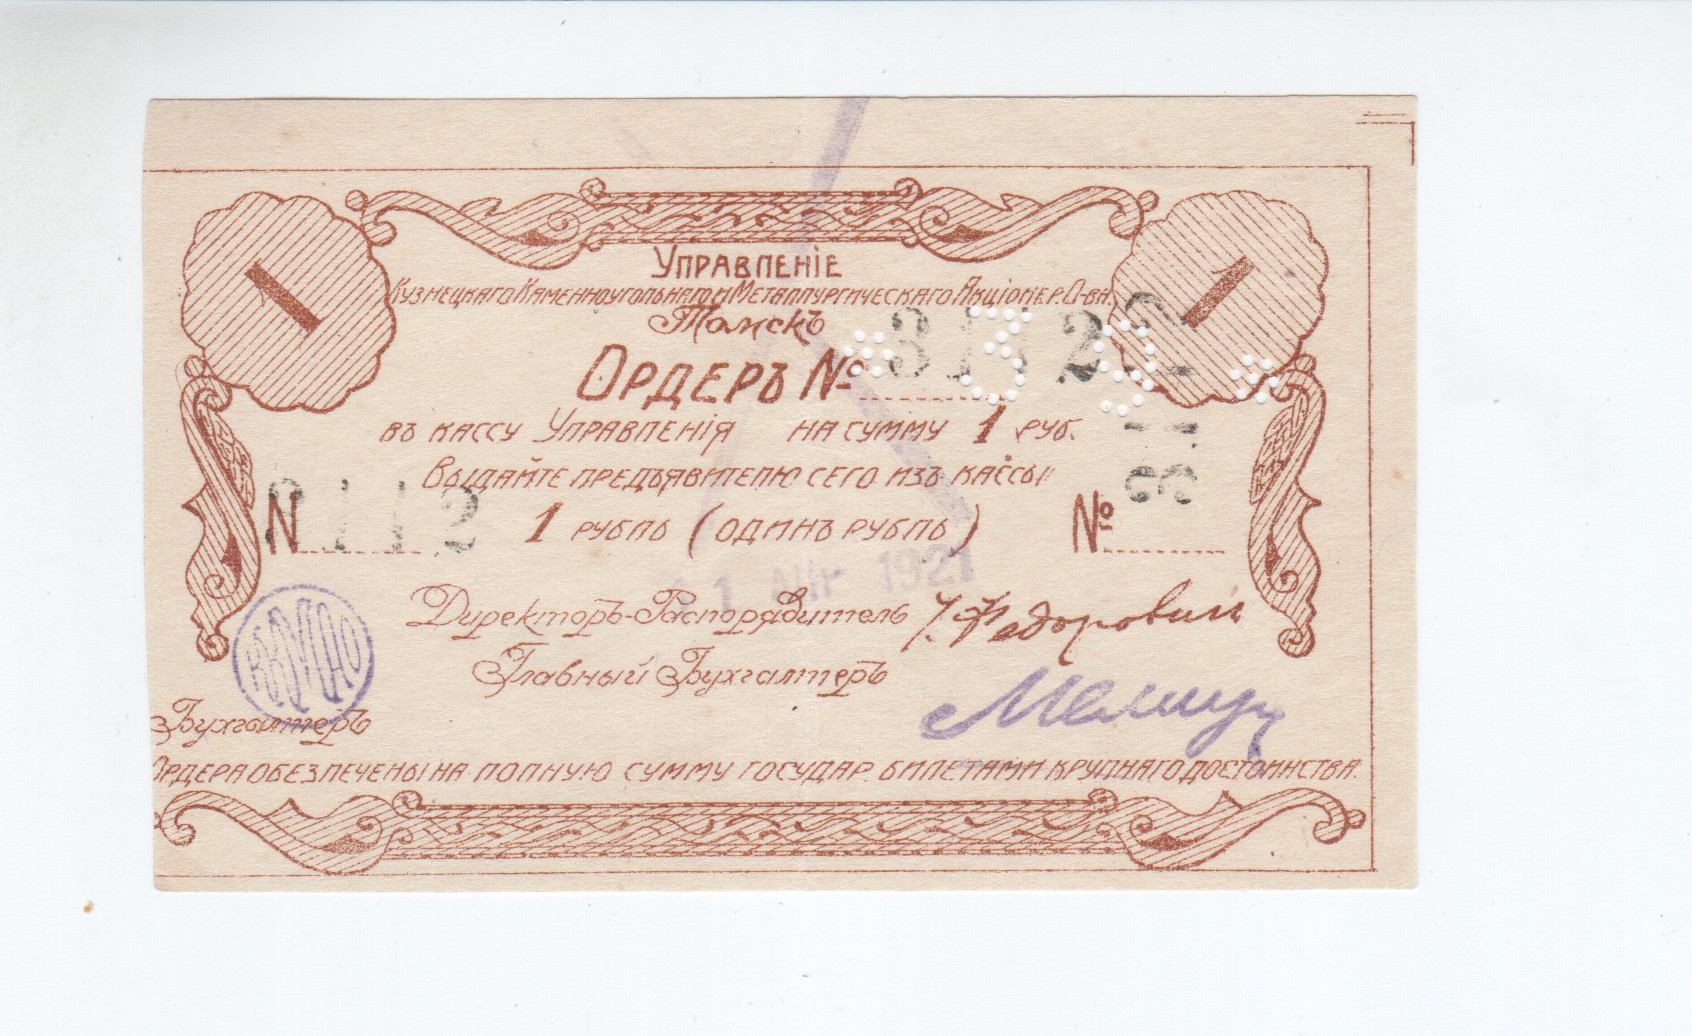 1
1
Управленіе
Кузнецкаго Каменноугольнаго и Металлургическаго Акціонер. О-ва.
Томскъ
Ордеръ №
въ кассу Управленія на сумму 1 руб.
Выдайте предъявителю сего изъ кассы
1 рубль (одинъ рубль)
N
№
1921
Директоръ-Распорядитель
Главный Бухгалтеръ
Бухгалтеръ
Ордера обезпечены на полную сумму государ. билетами крупнаго достоинства.